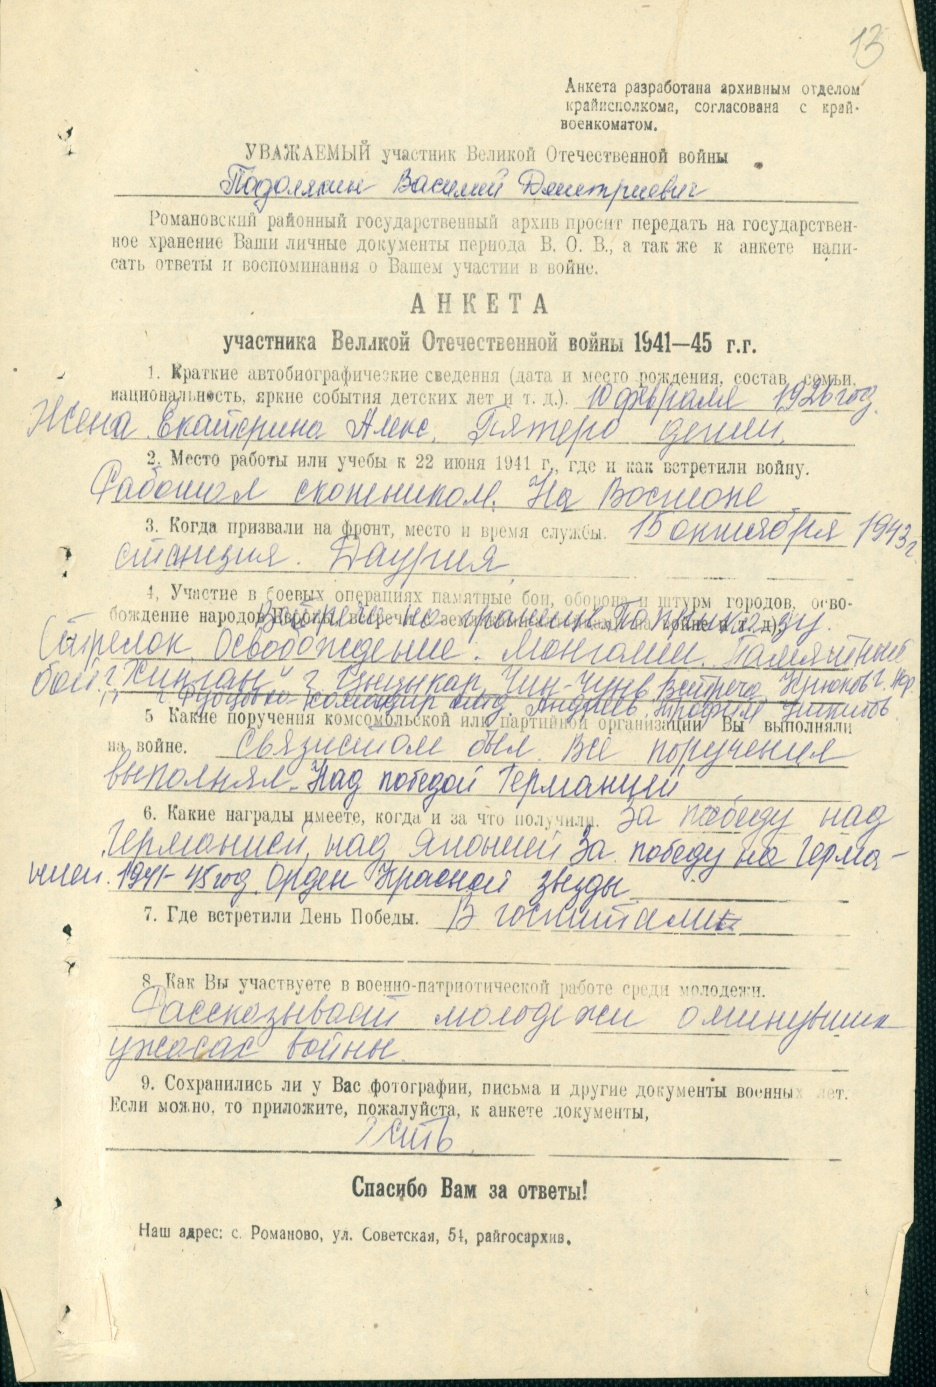 13
Анкета разработана архивным отделом
крайисполкома, согласована с край-
военкоматом.
УВАЖАЕМЫЙ участник Великой Отечественной войны
Подолякин Василий Дмитриевич
Романовский районный государственный архив просит передать на государствен-
ное хранение Ваши личные документы периода В. О. В., а так же к анкете напи-
сать ответы и воспоминания о Вашем участии в войне.
АНКЕТА
участника Великой Отечественной войны 1941—45 г.г.
1. Краткие автобиографические сведения (дата и место рождения, состав семьи,
национальность, яркие события детских лет и т. д.). 10 февраля 1926 год.
Жена Екатерина Алекс. Пятеро детей.
2. Место работы или учебы к 22 июня 1941 г., где и как встретили войну.
Работал скотником. На Востоке
3. Когда призвали на фронт, место и время службы. 15 октября 1943 г
станция. Даурия
4, Участие в боевых операциях памятные бои, оборона и штурм городов, осво-
бождение народов Европы, встречи с земляками на войне и т. д.)
на границы
Стрелок Освобождение. Монголии. Памятный
бой г. Хинган г. Встреча Крюков г.
командир Андреев, Трофим Никитов
5 Какие поручения комсомольской или партийной организации Вы выполняли
на войне. связистом был. Все поручения
выполнял. Над победой Германией
6. Какие награды имеете, когда и за что получили. За победу над
Германией, над Японией За победу на Герма-
нией. 1941-45 год. Орден Красной звезды
7. Где встретили День Победы. В госпитале
8. Как Вы участвуете в военно-патриотической работе среди молодежи.
Рассказывает молодежи о минувших
ужасах войны.
9. Сохранились ли у Вас фотографии, письма и другие документы военных лет.
Если можно, то приложите, пожалуйста, к анкете документы,
Есть
Спасибо Вам за ответы!
Наш адрес: с. Романово, ул. Советская, 54, райгосархив.